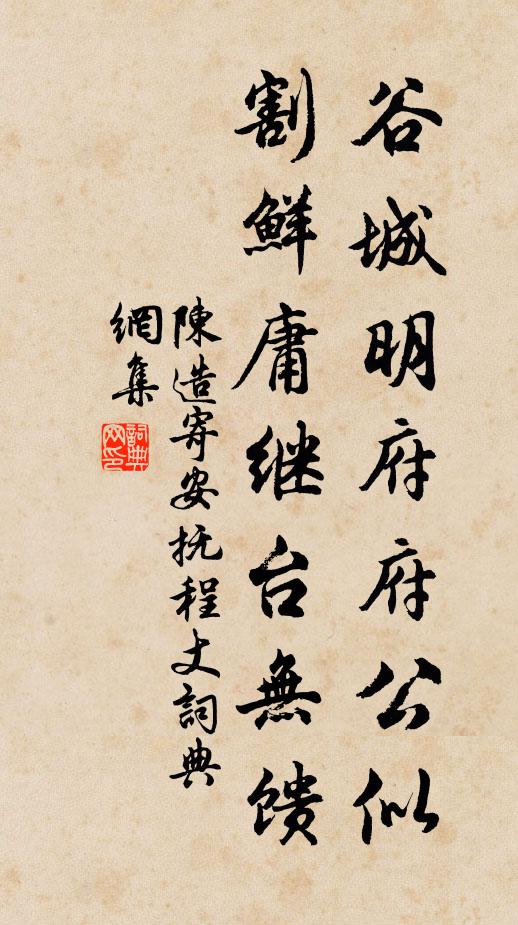 谷城明府府公似
割鮮庸继台無馈
陳造寄安抚程丈詞典
網集
詞典網印